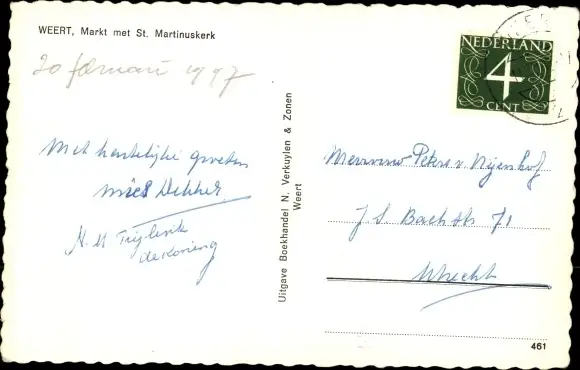 WEERT, Markt met St. Martinuskerk
20 februari 1997
Met hartelijke groeten
Mies Dekker
N. M.
de Koning
Uitgave Boekhandel N. Verkuylen & Zonen
Weert
NEDERLAND
4
CENT
Mevrouw Peters v. Nijenhof
J. S. Bachstr. 71
Utrecht
461